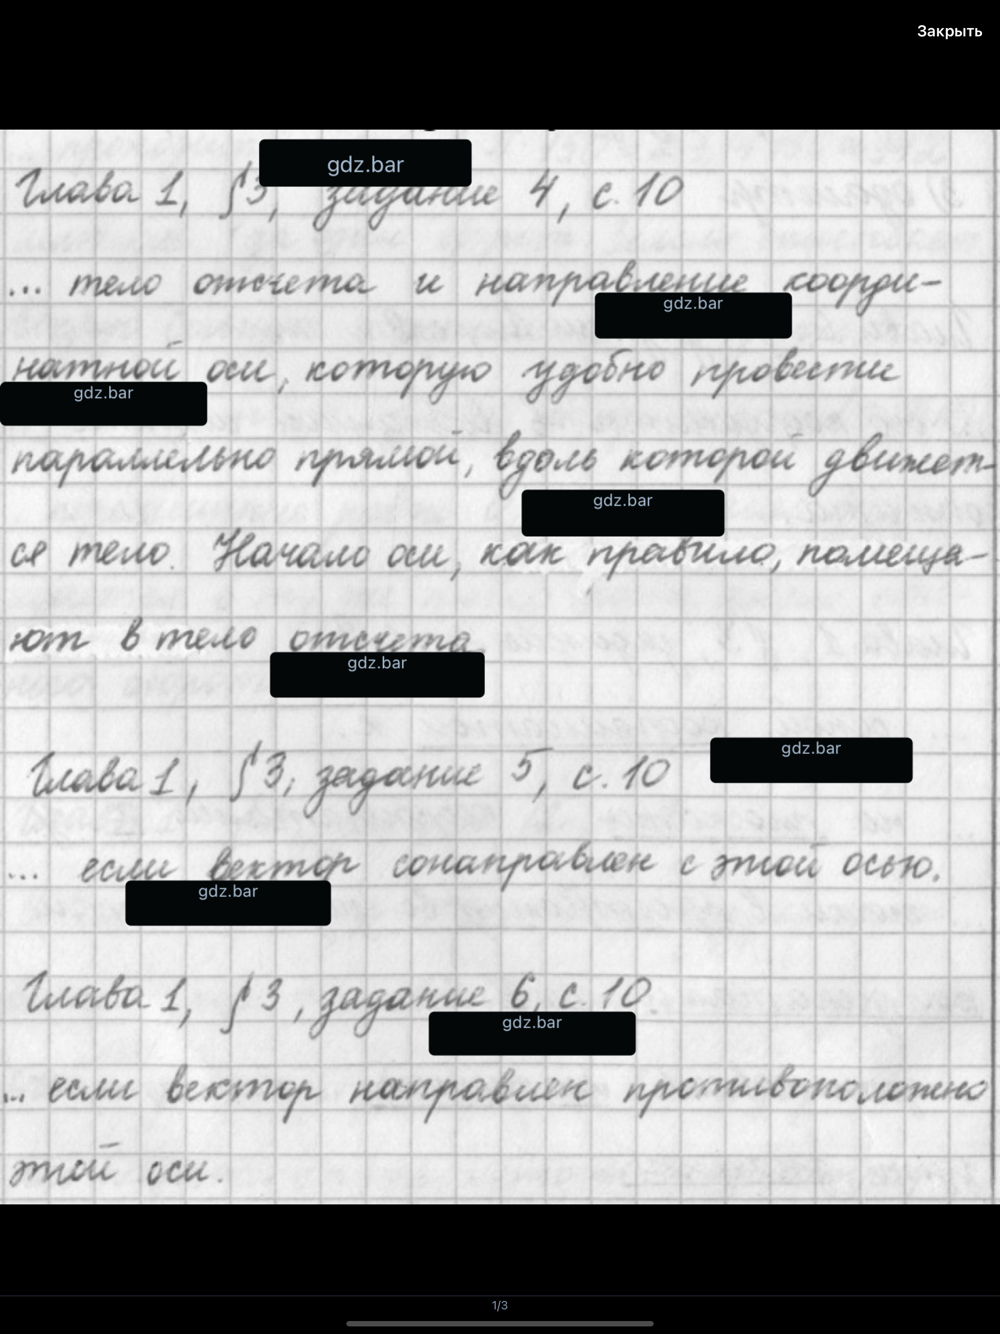 Закрыть
gdz.bar
Глава 1, §3, задание 4, с. 10
... тело отсчета и направление коорди-
gdz.bar
натной оси, которую удобно провести
gdz.bar
параллельно прямой, вдоль которой движет-
gdz.bar
ся тело. Начало оси, как правило, помеща-
ют в тело отсчета.
gdz.bar
gdz.bar
Глава 1, §3, задание 5, с. 10
... если вектор сонаправлен с этой осью.
gdz.bar
Глава 1, §3, задание 6, с. 10
gdz.bar
... если вектор направлен противоположно
этой оси.
1/3